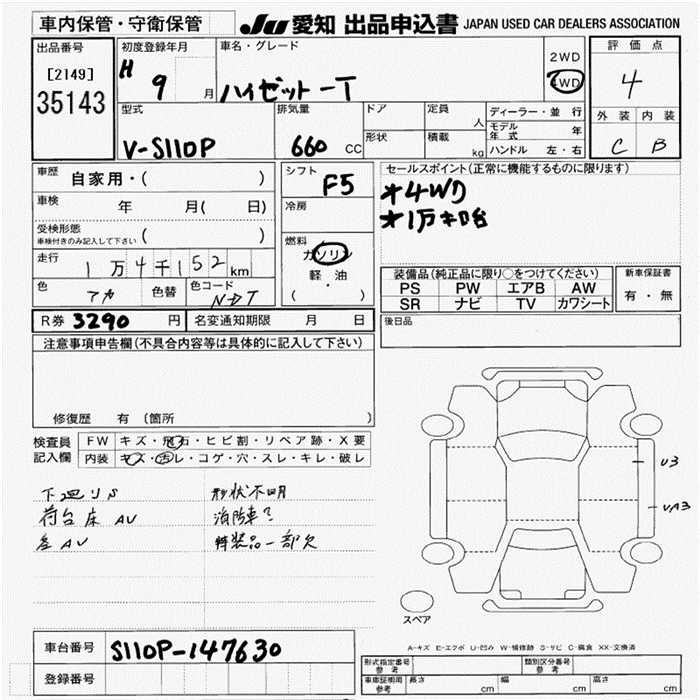 車内保管・守衛保管
JU 愛知 出品申込書 JAPAN USED CAR DEALERS ASSOCIATION
出品番号
[2149]
35143
初度登録年月
H 9 月
車名・グレード
ハイゼット-T
2WD
4WD
評価点
4
外装 内装
C B
型式
V-S110P
排気量
660 CC
ドア
形状
定員
人
積載
kg
ディーラー・並行
モデル年式 年
ハンドル 左・右
車歴
自家用・( )
車検
年 月( 日)
受検形態
車検付きのみ記入して下さい ( )
走行
1万4千152km
色
アカ
色替
色コード
R券 3290 円
名変通知期限 月 日
シフト
F5
冷房
燃料
ガソリン
軽油
( )
セールスポイント(正常に機能するものに限ります)
*4WD
*1万キロ台
装備品(純正品に限り○をつけてください)
PS PW エアB AW
SR ナビ TV カワシート
新車保証書
有・無
後日品
注意事項申告欄(不具合内容等は具体的に記入して下さい)
修復歴 有 (箇所 )
検査員記入欄
FW キズ・飛石・ヒビ割・リペア跡・X要
内装 キズ・汚レ・コゲ・穴・スレ・キレ・破レ
下廻りS 形状不明
荷台床AV 消防車?
巻AV 特装品一部欠
U3
UA3
スペア
A-キズ E-エクボ U-凹み W-補修跡 S-サビ C-腐食 XX-交換済
車台番号 S110P-147630
登録番号
形式指定番号 参考
類別区分番号 参考
車庫証明用 参考
長さ cm
幅 cm
高さ cm